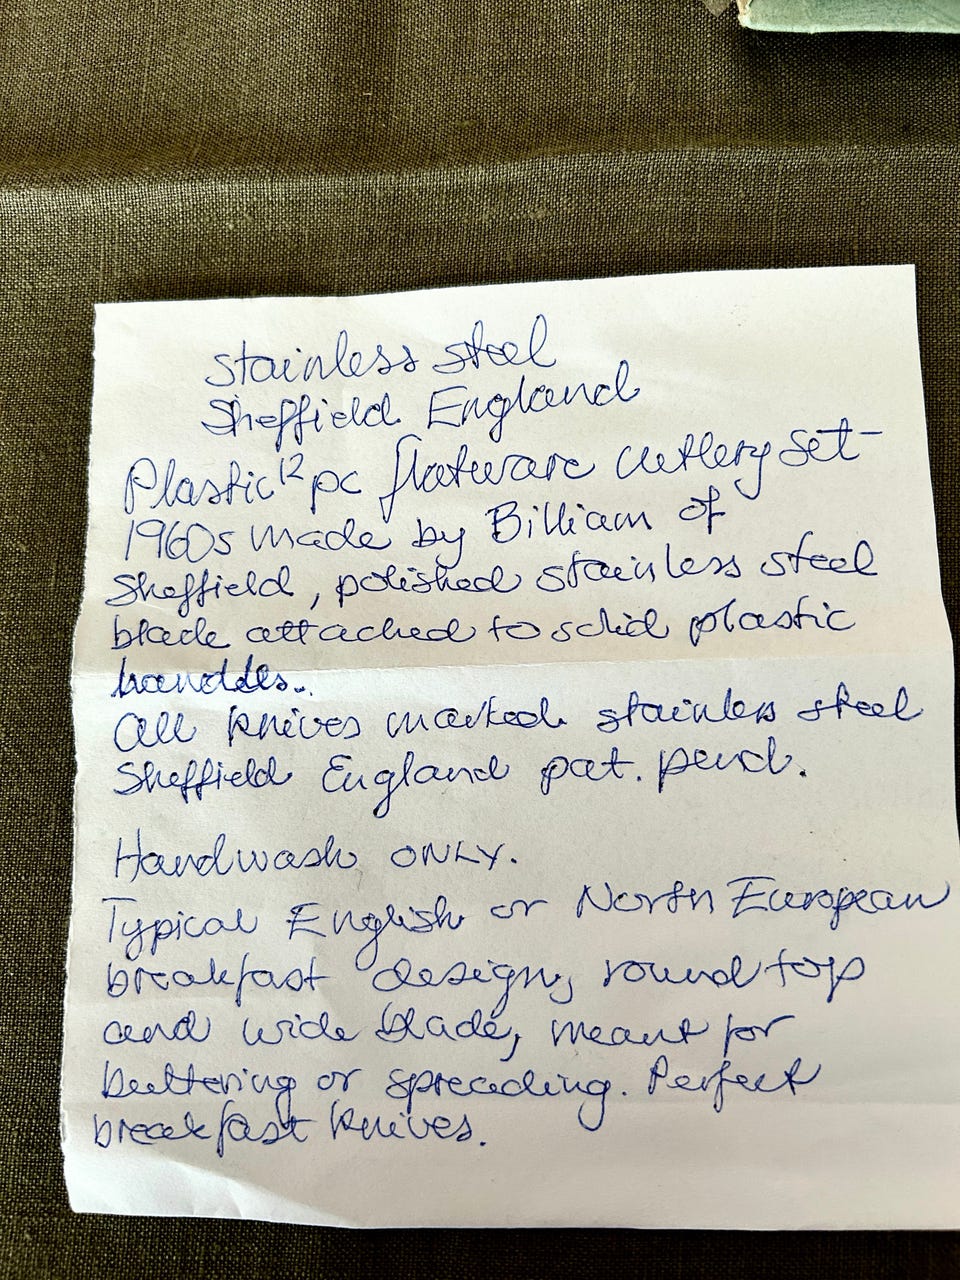 Stainless steel
Sheffield England
Plastic 12 pc flatware cutlery set-
1960s made by Billiam of
Sheffield, polished stainless steel
blade attached to solid plastic
handles..
All knives marked stainless steel
Sheffield England pat. pend.
Handwash ONLY.
Typical English or North European
breakfast design, round top
and wide blade, meant for
buttering or spreading. Perfect
breakfast knives.